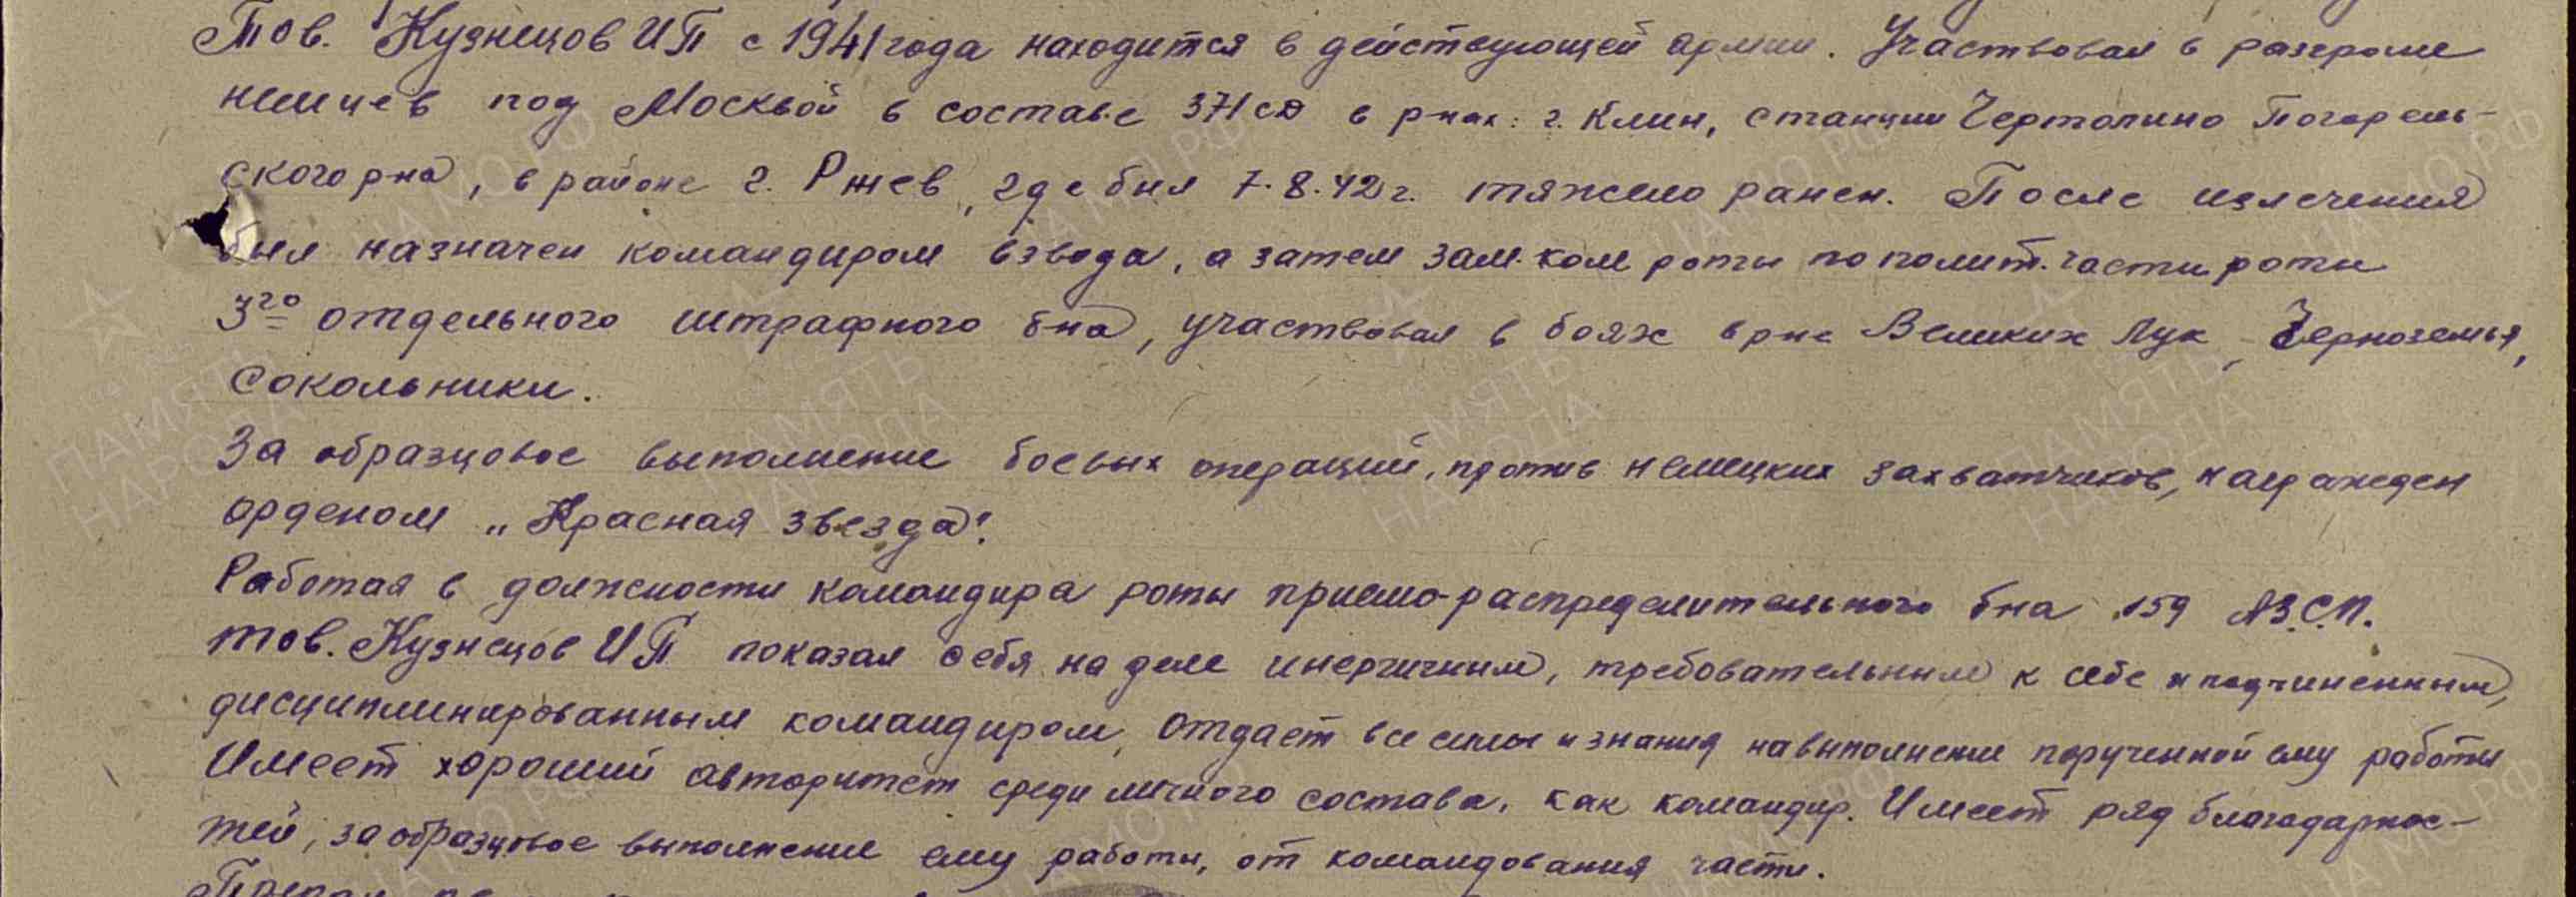 Тов. Кузнецов ИП с 1941 года находится в действующей армии. Участвовал в разгроме
немцев под Москвой в составе 371 сд в р-нах: г. Клин, станции Чертолино Погорель-
ского р-на, в районе г. Ржев, где был 7.8.42 г. тяжело ранен. После излечения
был назначен командиром взвода, а затем зам. ком роты по полит. части роты
3го отдельного штрафного б-на, участвовал в боях в р-не Великих Лук, Черноземья,
Сокольники.
За образцовое выполнение боевых операций, против немецких захватчиков, награжден
орденом „Красная звезда".
Работая в должности командира роты приемо-распределительного б-на 159 АЗ.С.П.
тов. Кузнецов ИП показал себя на деле инергичным, требовательным к себе и подчиненным,
дисциплинированным командиром, отдает все силы и знания на выполнение порученной ему работы
Имеет хороший авторитет среди личного состава, как командир. Имеет ряд благодарнос-
тей, за образцовое выполнение ему работы, от командования части.
ПАМЯТЬ НАРОДА